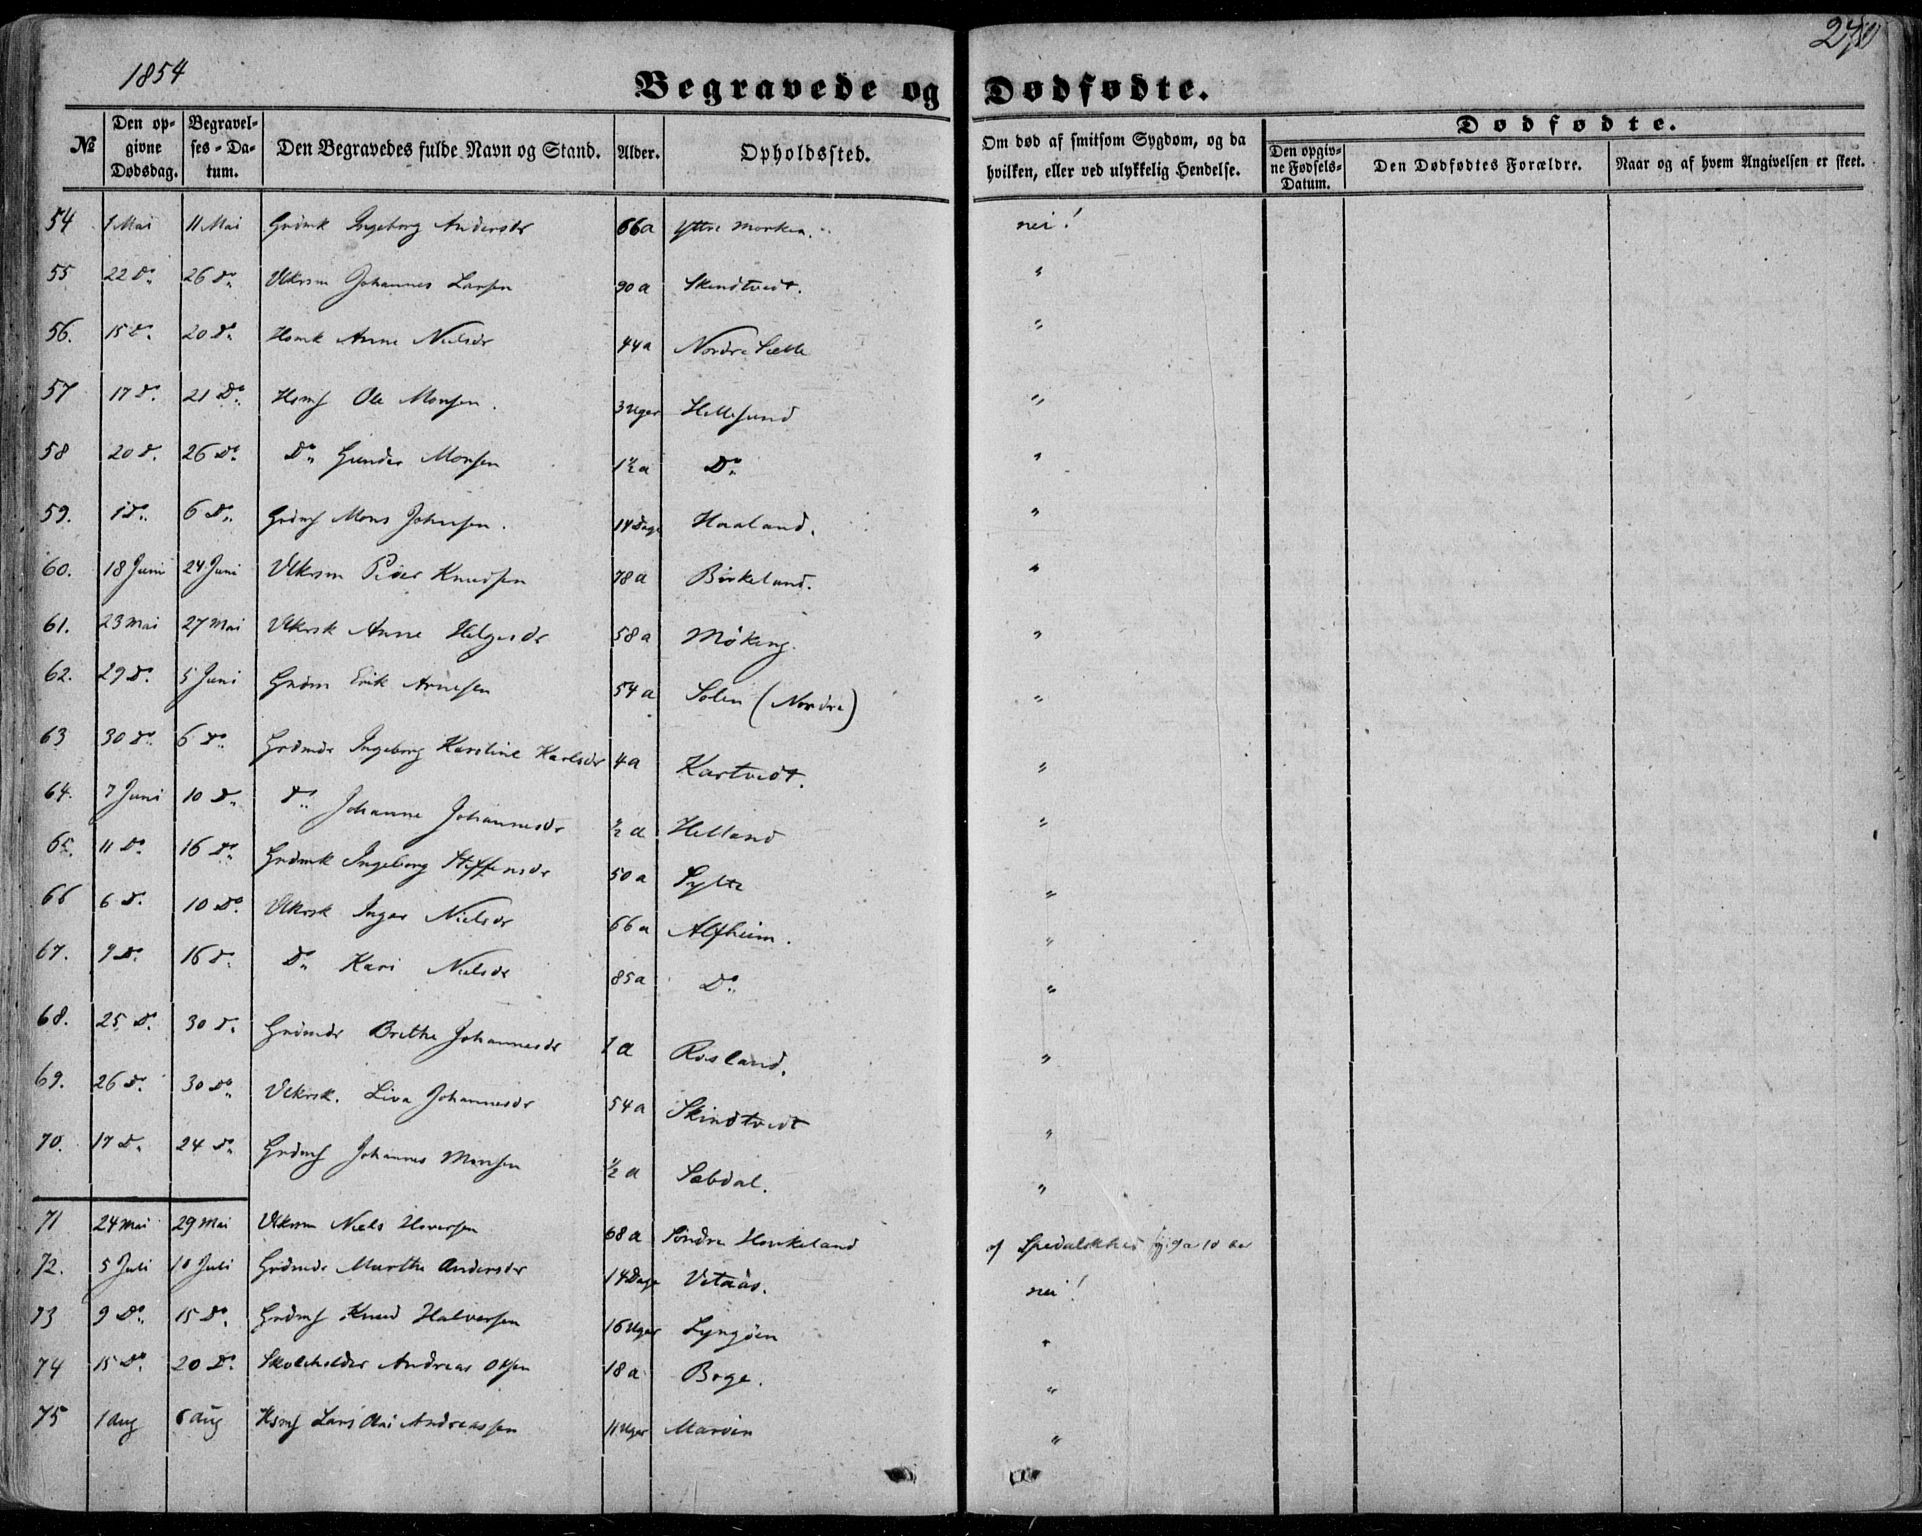 1854
270
Begravede og Dødfødte.
№ Den opgivne Dødsdag. Begravelses-Datum. Den Begravedes fulde Navn og Stand. Alder. Opholdssted. Om død af smitsom Sygdom, og da hvilken, eller ved ulykkelig Hendelse. Dødfødte. Den opgivne Fødsels-Datum. Den Dødfødtes Forældre. Naar og af hvem Angivelsen er skeet.
54 1 Mai 11 Mai Grdmk Ingeborg Andersdr 66 a Yttre Morken. nei!
55 22 Do 26 Do Vlkrsm Johannes Larsen 90 a Skindtvedt. "
56. 15 Do 20 Do Hsmk Anne Nielsdr 44 a Nordre Sætte "
57 17 Do 21 Do Hsms Ole Monsen. 3 Uger Hellesund "
58 20 Do 26 Do Do Gunder Monsen 1½ a Do "
59. 1 Do 6 Do Grdms Mons Johnsen. 14 Dage Haaland. "
60. 18 Juni 24 Juni Vlkrsm Peder Knudsen 78 a Birkeland. "
61. 23 Mai 27 Mai Vlkrsk Anne Helgesdr 58 a Møking. "
62. 29 Do 5 Juni Grdm Erik Arnesen 54 a Solen (Nordre) "
63 30 Do 6 Do Grdmdr Ingeborg Karoline Karlsdr 4 a Kartvedt. "
64. 7 Juni 10 Do Do Johanne Johannesdr ½ a Helland "
65. 11 Do 16 Do Grdmk Ingeborg Steffensdr 50 a Sylte "
66 6 Do 10 Do Vlkrsk Inger Nielsdr 66 a Alfheim. "
67. 9 Do 16 Do Do Kari Nielsdr 85 a Do "
68. 25 Do 30 Do Grdmdr Brithe Johannesdr 1 a Rosland. "
69. 26 Do 30 Do Vlkrsk. Liva Johannesdr 54 a Skindtvedt "
70. 17 Do 24 Do Grdms Johannes Monsen ½ a Sæbdal. "
71 24 Mai 29 Mai Vlkrsm Niels Iversen 68 a Søndre Haukeland af Spedalskhed 9 a 10 aar
72. 5 Juli 10 Juli Grdmdr Marthe Andersdr 14 Dage Vetaas. nei!
73 9 Do 15 Do Grdms Knud Halvorsen 16 Uger Lyngøen "
74 15 Do 20 Do Skoleholder Andreas Olsen 18 a Boge. "
75 1 Aug 6 Aug Hsms Lars Olai Andreassen 11 Uger Marøen "